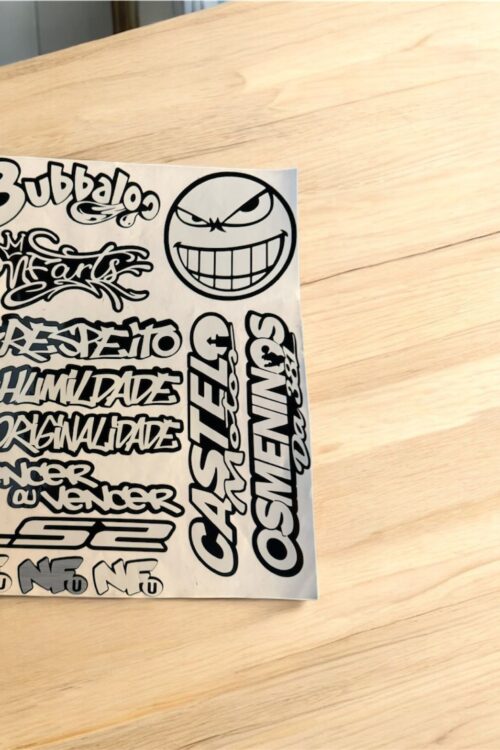 Bubbaloo
arts
RESPEITO
HUMILDADE
ORIGINALIDADE
OU VENCER
LS2
NFU NFU
CASTELO
Motos
OSMENINOS
Da 381